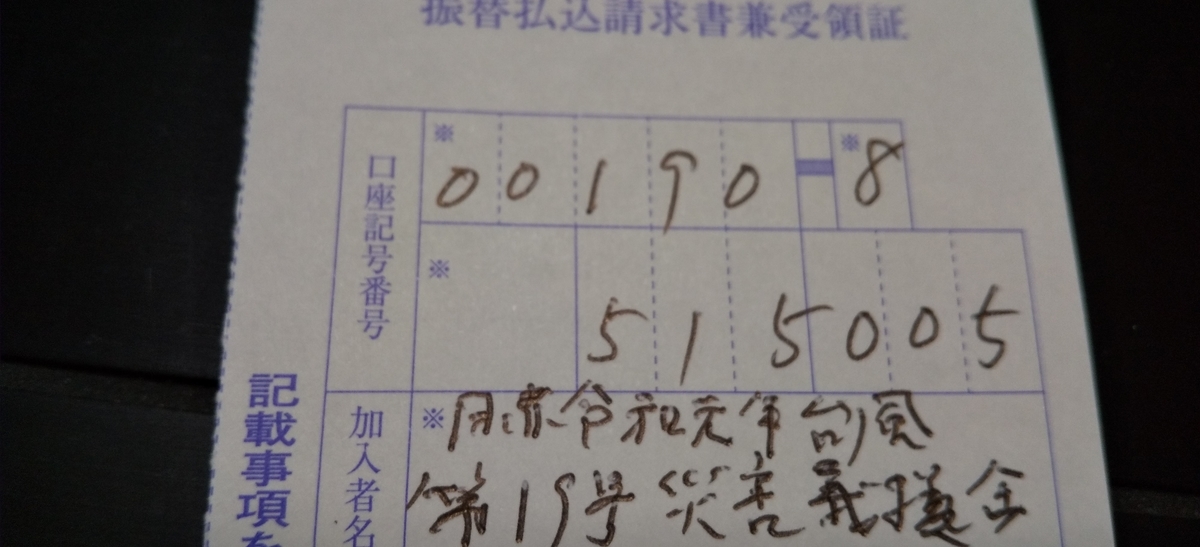 振替払込請求書兼受領証
口座記号番号
※ 00190-※8
※ 515005
加入者名
※日赤令和元年台風
第19号災害義援金
記載事項を